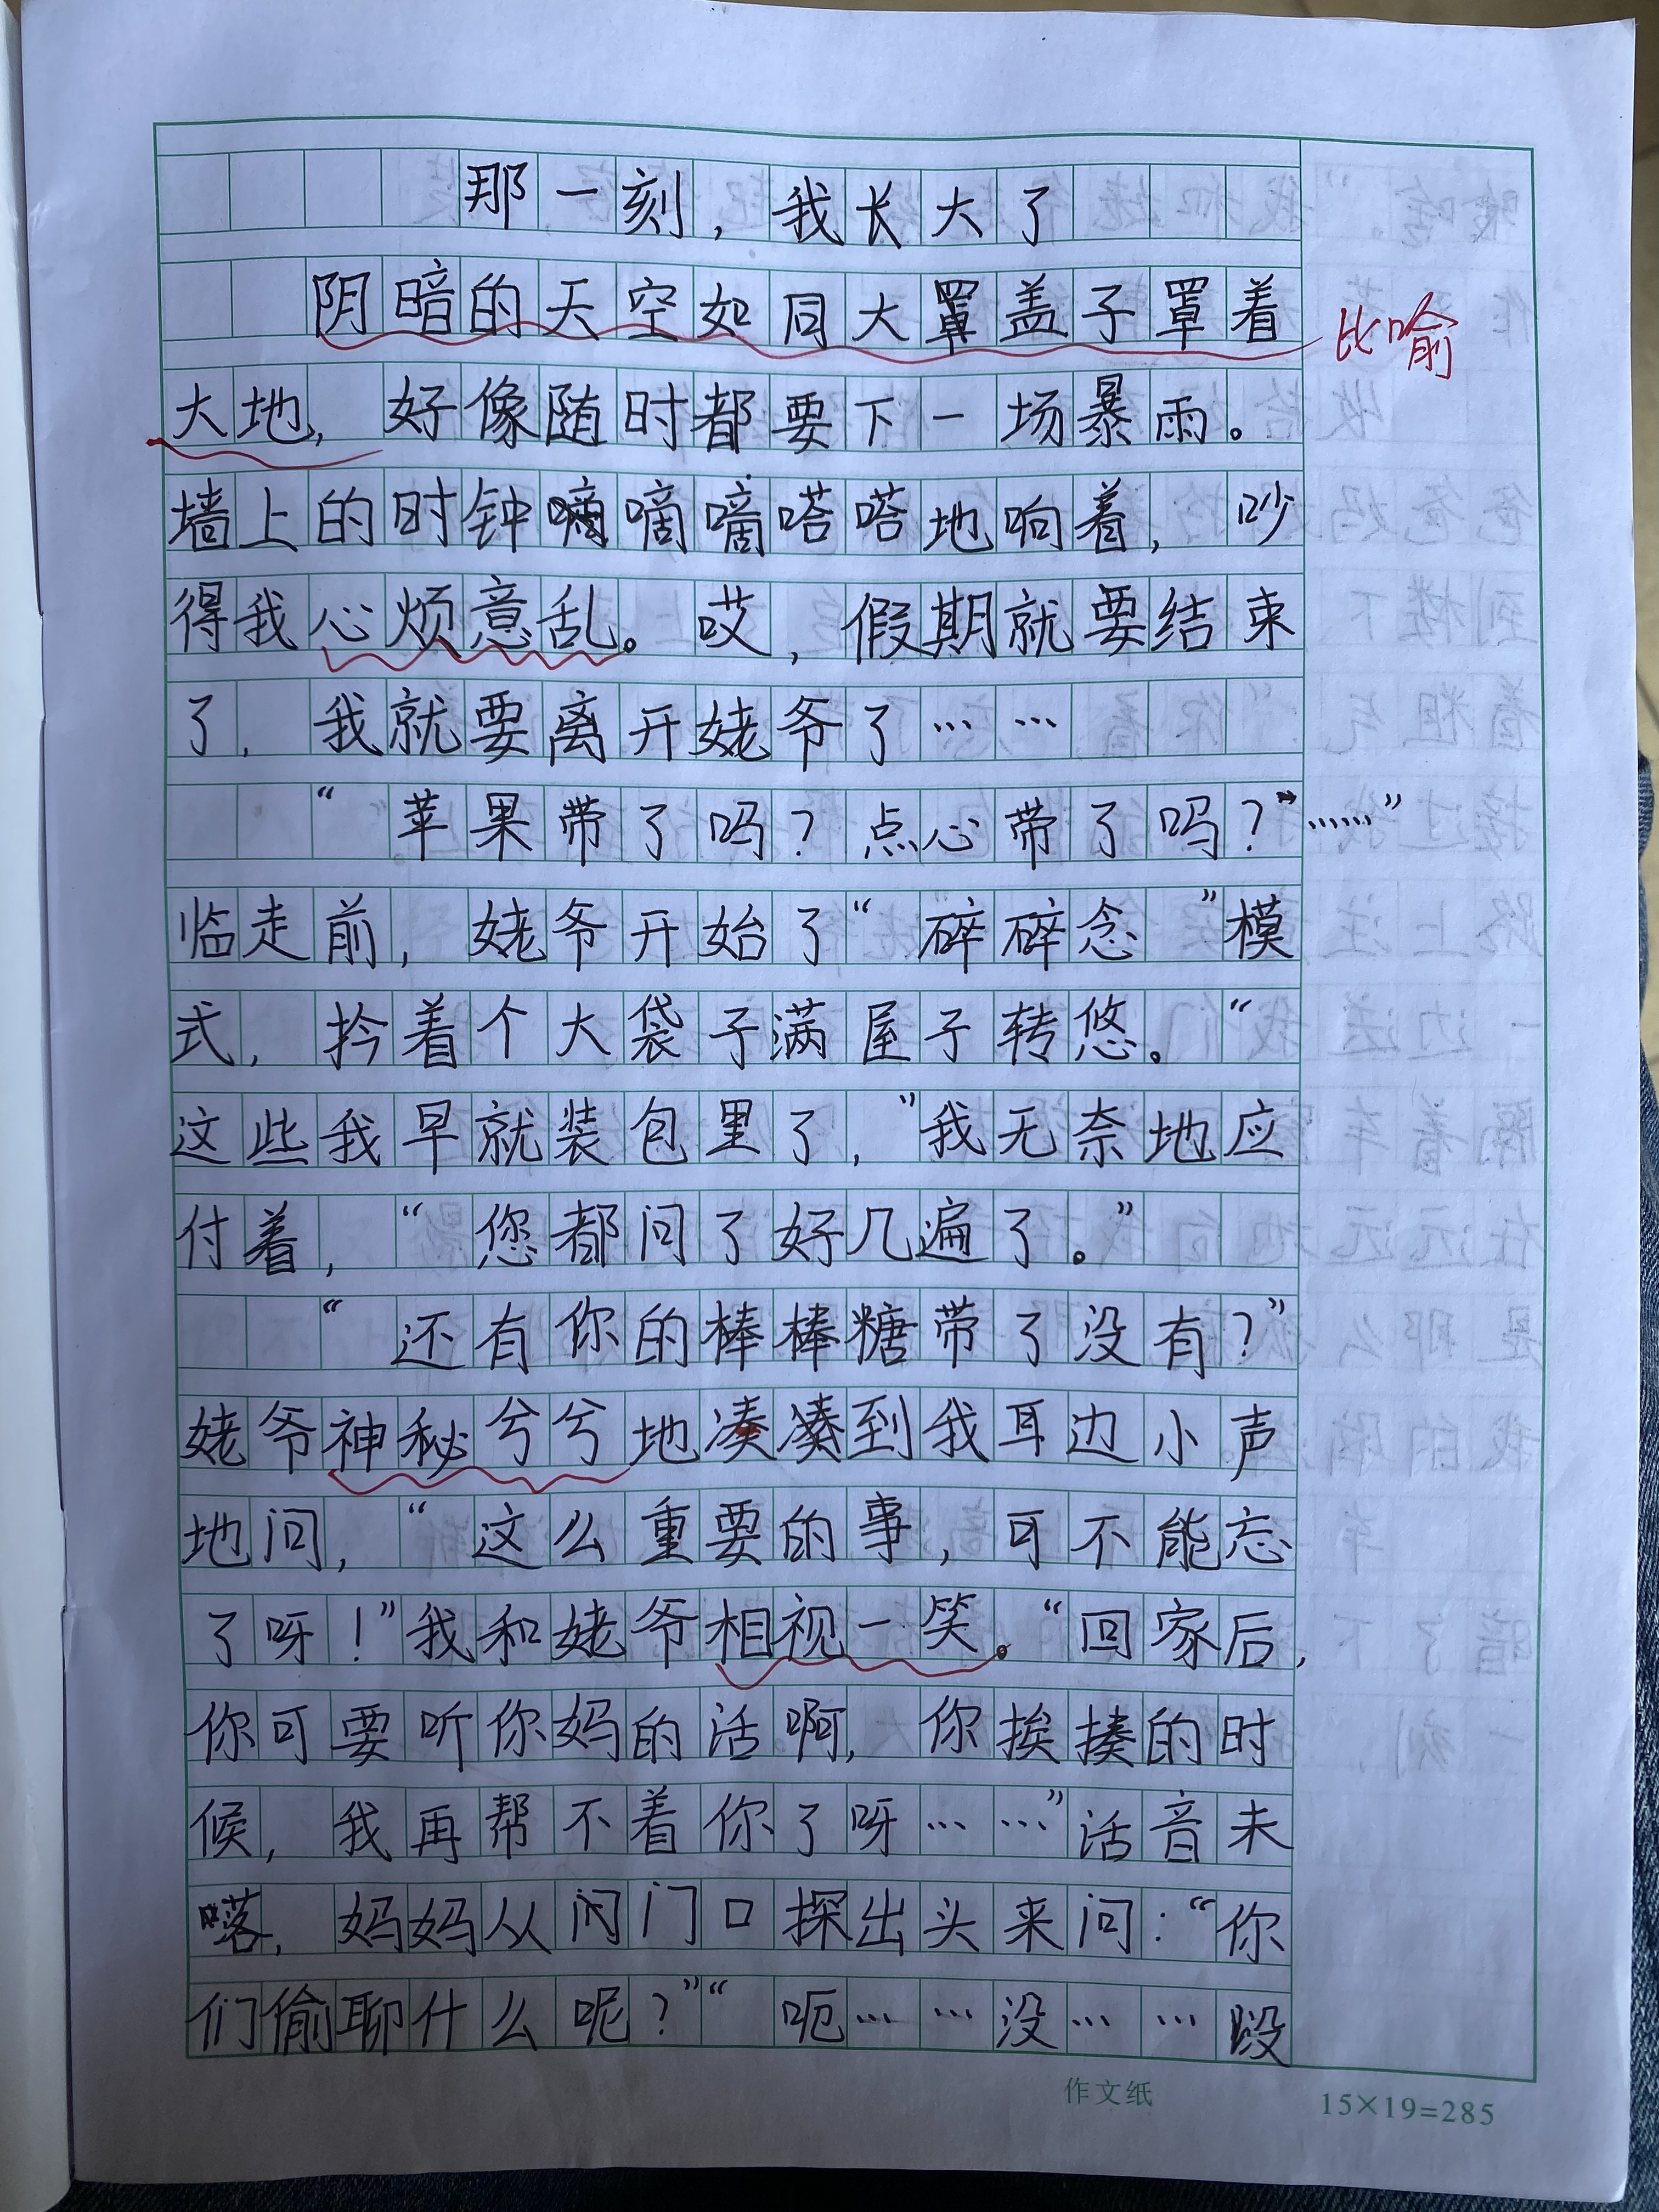 那一刻，我长大了
阴暗的天空如同大罩盖子罩着
比喻
大地，好像随时都要下一场暴雨。
墙上的时钟嘀嘀嗒嗒地响着，吵
得我心烦意乱。哎，假期就要结束
了，我就要离开姥爷了……
“苹果带了吗？点心带了吗？……”
临走前，姥爷开始了“碎碎念”模
式，拎着个大袋子满屋子转悠。“
这些我早就装包里了，”我无奈地应
付着，“您都问了好几遍了。”
“还有你的棒棒糖带了没有？”
姥爷神秘兮兮地凑到我耳边小声
地问，“这么重要的事，可不能忘
了呀！”我和姥爷相视一笑。“回家后，
你可要听你妈的活啊，你挨揍的时
候，我再帮不着你了呀……”活音未
落，妈妈从门口探出头来问：“你
们偷聊什么呢？”“呃……没……
作文纸
15×19=285